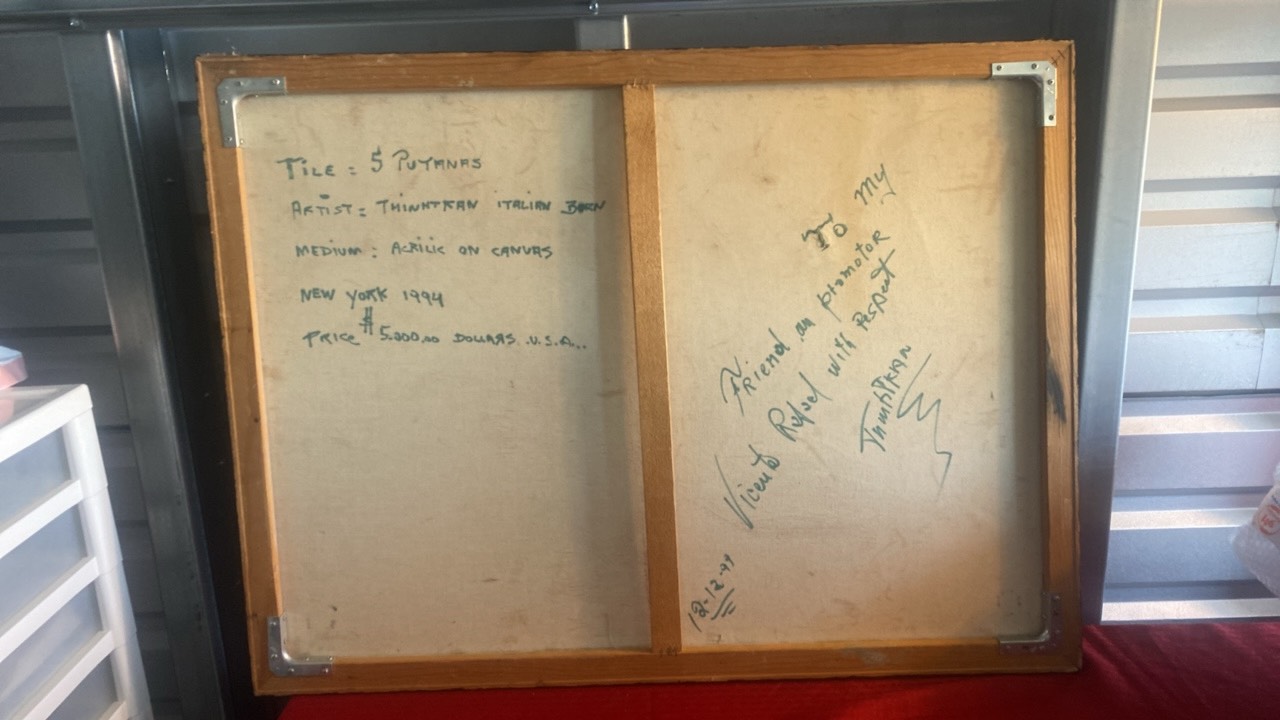 TILE = 5 PUTANAS
ARTIST = THINATRAN ITALIAN BORN
MEDIUM : ACRILIC ON CANVAS
NEW YORK 1994
PRICE $ 5.000.00 DOLLARS U.S.A...
To My
Friend an promotor
Vicente Rafael with Respect
12-12-99